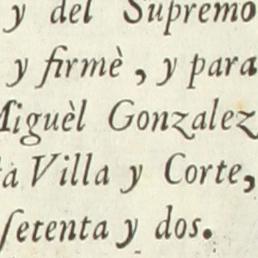 y del Supremo
y firmè, y para
Miguèl Gonzalez
tà Villa y Corte,
ſetenta y dos.